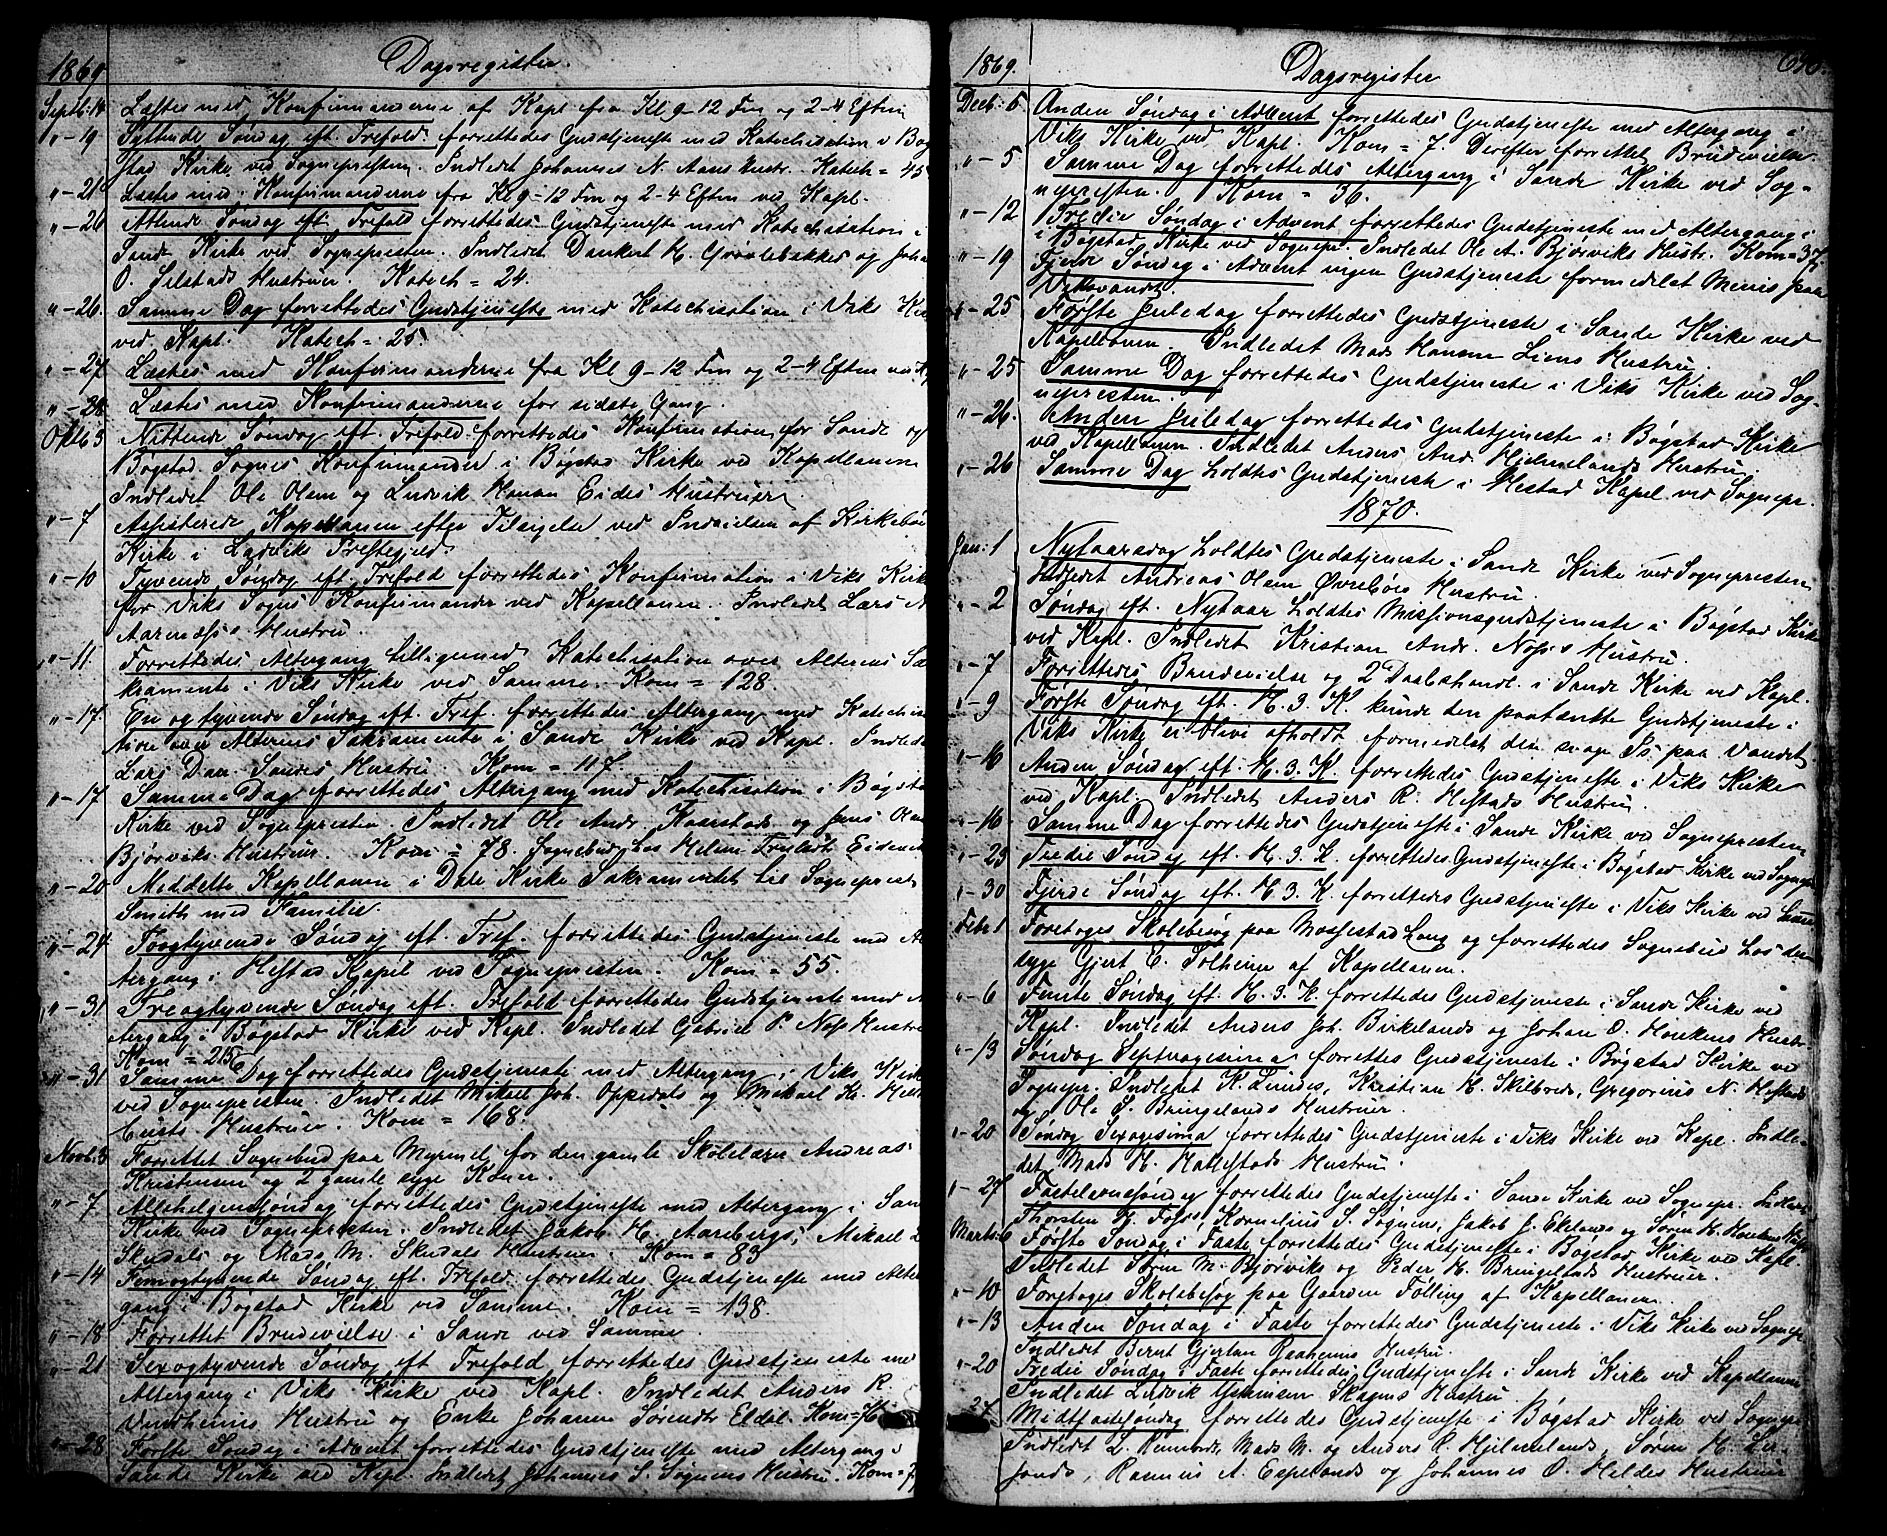 1869 Dagsregister.
Septb: 14 Læstes med Konfirmanderne af Kapl fra Kl 9-12 Fm og 2-4 Eftm
"-19 Syttende Søndag eft. Trefold. forrettedes Gudstjeneste med Katechisation i Bøg
stad Kirke ved Sognepresten. Indledet Johannes N. Aass Hustr. Katech = 45
"-21 Læstes med Konfirmanderne fra Kl 9-12 Fm og 2-4 Eftm ved Kapl.
"-26 Attende Søndag eft. Trefold forrettedes Gudstjeneste med Katechisation i
Sande Kirke ved Sognepresten. Indledet Dankert H. og Joha
O. Hustruer. Katech = 24.
"-26. Samme Dag forrettedes Gudstjeneste med Katechisation i Viks Kir
ved Kapl. Katech = 25
"-27 Læstes med Konfirmanderne fra Kl 9-12 Fm og 2-4 Eftm
"-28 Læstes med Konfirmanderne for sidste Gang.
Oktb 3 Nittende Søndag eft. Trefold. forrettedes Konfirmation for Sande og
Bøgstad Sognes Konfirmander i Bøgstad Kirke ved Kapellanen
Indledet Ole Olsen og Ludvik Hansen Eides Hustruer.
"-7 Assisterede Kapellanen efter Tilsigelse ved Indvielsen af Kirkebø
Kirke i Ladviks Prestegjeld
"-10 Tyvende Søndag eft. Trefold forrettedes Konfirmation i Viks Kirk
for Viks Sogns Konfirmander ved Kapellanen. Indledet Lars N
Aarnæss's Hustru.
"-11. Forrettedes Altergang tilligemed Katechisation over Alterens Sa
kramente i Viks Kirke ved Samme. Kom = 128.
"-17. En og tyvende Søndag eft. Tref. forrettedes Altergang med Katechisa
tion over Alterens Sakramente i Sande Kirke ved Kapl. Indlede
Lars Dan. Sandes Hustru Kom = 117
"-17 Samme Dag forrettedes Altergang med Katechisation i Bøgsta
Kirke ved Sognepresten Indledet Ole Andr. Kaarstads og Jens Olsen
Bjørviks Hustruer. Kom = 78. Sognebud hos Helene
"-20 Meddelte Kapellanen i Dale Kirke Sakramentet til Sogneprest
Smith med Familie.
"-24 Toogtyvende Søndag eft. Tref. forrettedes Gudstjeneste med Al
tergang i Hestad Kapel ved Sognepresten. Kom = 55.
"-31 Treogtyvende Søndag eft. Trefold forrettedes Gudstjeneste med Al
tergang i Bøgstad Kirke ved Kapl. Indledet Gabriel P. Næss Hustru
Kom = 215
"-31 Samme Dag forrettedes Gudstjeneste med Altergang i Viks Kirke
ved Sognepresten. Indledet Mikael Joh. Oppedals og Mikael H.
Hustruer. Kom = 168.
Novb: 3 Forrettet Sognebud paa Myrmel for den gamle Skolelærer Andreas
Kristensen og 2 gamle syge Koner.
"-7 Allehelgenssøndag forrettedes Gudstjeneste med Altergang i San
Kirke ved Sognepresten. Indledet Jakob H. Aarsbergs, Mikael
Skudals og Mads M. Skudals Hustruer. Kom = 83
"-14 Femogtyvende Søndag eft. Trefold. forrettedes Gudstjeneste med Alter
gang i Bøgstad Kirke ved Samme. Kom = 138.
"-18 Forrettet Brudevielse i Sande ved Samme.
"-21 Sexogtyvende Søndag eft Trefold forrettedes Gudstjeneste med
Altergang i Viks Kirke ved Kapl. Indledet Anders R.
Hustru og Enke Johanne Eldal. Kom=76
"-28 Første Søndag i Advent forrettedes Gudstjeneste med Altergang i
Sande Kirke ved Kapl. Indledet Johannes S. Sognens Hustru. Kom=
1869. Dagsregister 630.
Decb: 5 Anden Søndag i Advent forrettedes Gudstjeneste med Altergang i
Viks Kirke ved Kapl. Kom = 7. Derefter forrettet Brudevielse.
"-5 Samme Dag forrettedes Altergang i Sande Kirke ved Sog=
nepresten. Kom = 36.
"-12 Tredie Søndag i Advent forrettedes Gudstjeneste med Altergang i
Bøgstad Kirke ved Sognepr. Indledet Ole A. Bjørviks Hustr. Kom=37.
"-19 Fjerde Søndag i Advent ingen Gudstjeneste formedelst Menis paa
Viksvandet.
"-25 Første Juledag forrettedes Gudstjeneste i Sande Kirke ved
Kapellanen. Indledet Mads Hansen Liens Hustru.
"-25 Samme Dag forrettedes Gudstjeneste i Viks Kirke ved Sog-
nepresten.
"-26. Anden Juledag forrettedes Gudstjeneste i Bøgstad Kirke
ved Kapellanen. Indledet Anders And. Hjelmelands Hustru.
"-26 Samme Dag holdtes Gudstjeneste i Hestad Kapel ved Sognepr.
1870.
Jan: 1 Nytaarsdag holdtes Gudstjeneste i Sande Kirke ved Sognepresten
Indledet Andreas Olsen Øvrebøes Hustru.
"-2 Søndag eft. Nytaar holdtes Missionsgudstjeneste i Bøgstad Kirke
ved Kapl. Indledet Kristian Andr. Næss's Hustru.
"-7 Forrettedes Brudevielse og 2 Daabshandl. i Sande Kirke ved Kapl.
"-9 Første Søndag eft. H. 3. K. kunde den paatænkte Gudstjeneste i
Viks Kirke ei blive afholdt formedelst den svage Is paa Vandet.
"-16 Anden Søndag eft. H. 3. K. forrettedes Gudstjeneste i Viks Kirke
ved Kapl. Indledet Anders R. Hestads Hustru.
"-16. Samme Dag forrettedes Gudstjeneste i Sande Kirke ved Sognepresten
"-23 Tredie Søndag eft. H. 3. K. forrettedes Gudstjeneste i Bøgstad Kirke ved Sognepr
"-30 Fjerde Søndag eft. H. 3. K. forrettedes Gudstjeneste i Viks Kirke ved
Febr. 1 Foretoges Skolebesøg paa og forrettedes Sognebud hos den
syge Gjert E. Solheim af Kapellanen.
"-6 Femte Søndag eft. H. 3. K. forrettedes Gudstjeneste i Sande Kirke ved
Kapl. Indledet Anders Joh. Birkelands og Johan O. Houkens Hustr.
"-13 Søndag Septuagesima forrettes Gudstjeneste i Bøgstad Kirke ved
Sognepr. Indledet K. Lundes, Kristian H. Skilbreds, Gregorius N. Hestads
og Ole S. Bringelands Hustruer.
"-20 Søndag Sexagesima forrettedes Gudstjeneste i Viks Kirke ved Kapl. Indle-
det Mads H. Hatlestads Hustru.
"-27 Fastelavnssøndag forrettedes Gudstjeneste i Sande Kirke ved Sognepr. Indledet
Thorsten H. Foss', Kornelius S. Sognens, Jakob J. Ekelands og Søren H. Houkens
Marts: 6 Første Søndag i Faste forrettedes Gudstjeneste i Bøgstad Kirke ved Kapl.
Indledet Søren M. Bjørviks og Peder H. Bringelands Hustruer.
"-10 Foretoges Skolebesøg paa Gaarden Følling af Kapellanen.
"-13 Anden Søndag i Faste forrettedes Gudstjeneste i Viks Kirke ved Sognepr
Indledet Bernt Hustru.
"-20 Tredie Søndag i Faste forrettedes Gudstjeneste i Sande Kirke ved Kapellanen
Indledet Ludvik Hustru
27 Midtfastesøndag forrettedes Gudstjeneste i Bøgstad Kirke ved Sognepr
Indledet L. Mads M. og Anders R. Hjelmelands, Søren H.
Rasmus A. Espelands og Johannes O. Heldes Hustruer